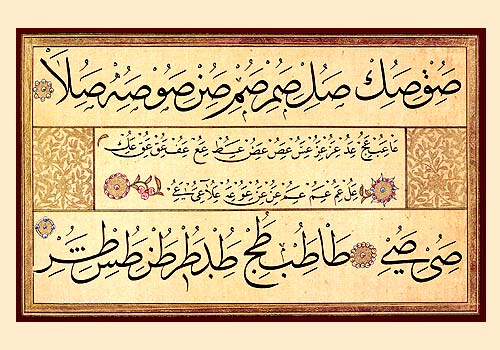 صق صك صل صم صم صن صو صه صلا
عا عب عج عد عر عس عص عط عع عف عق عك
عل عم عم عن عو عه علا عى
صى صے طا طب طج طد طر طس